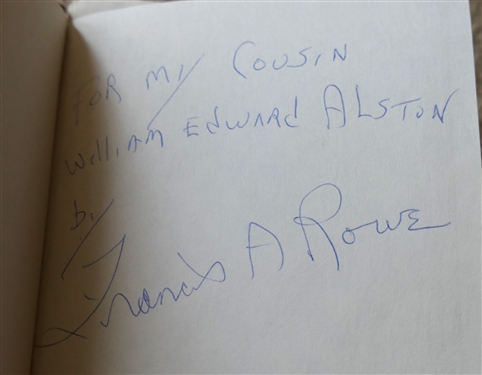 FOR MY COUSIN
William Edward ALSTON
by
Francis A Rowe